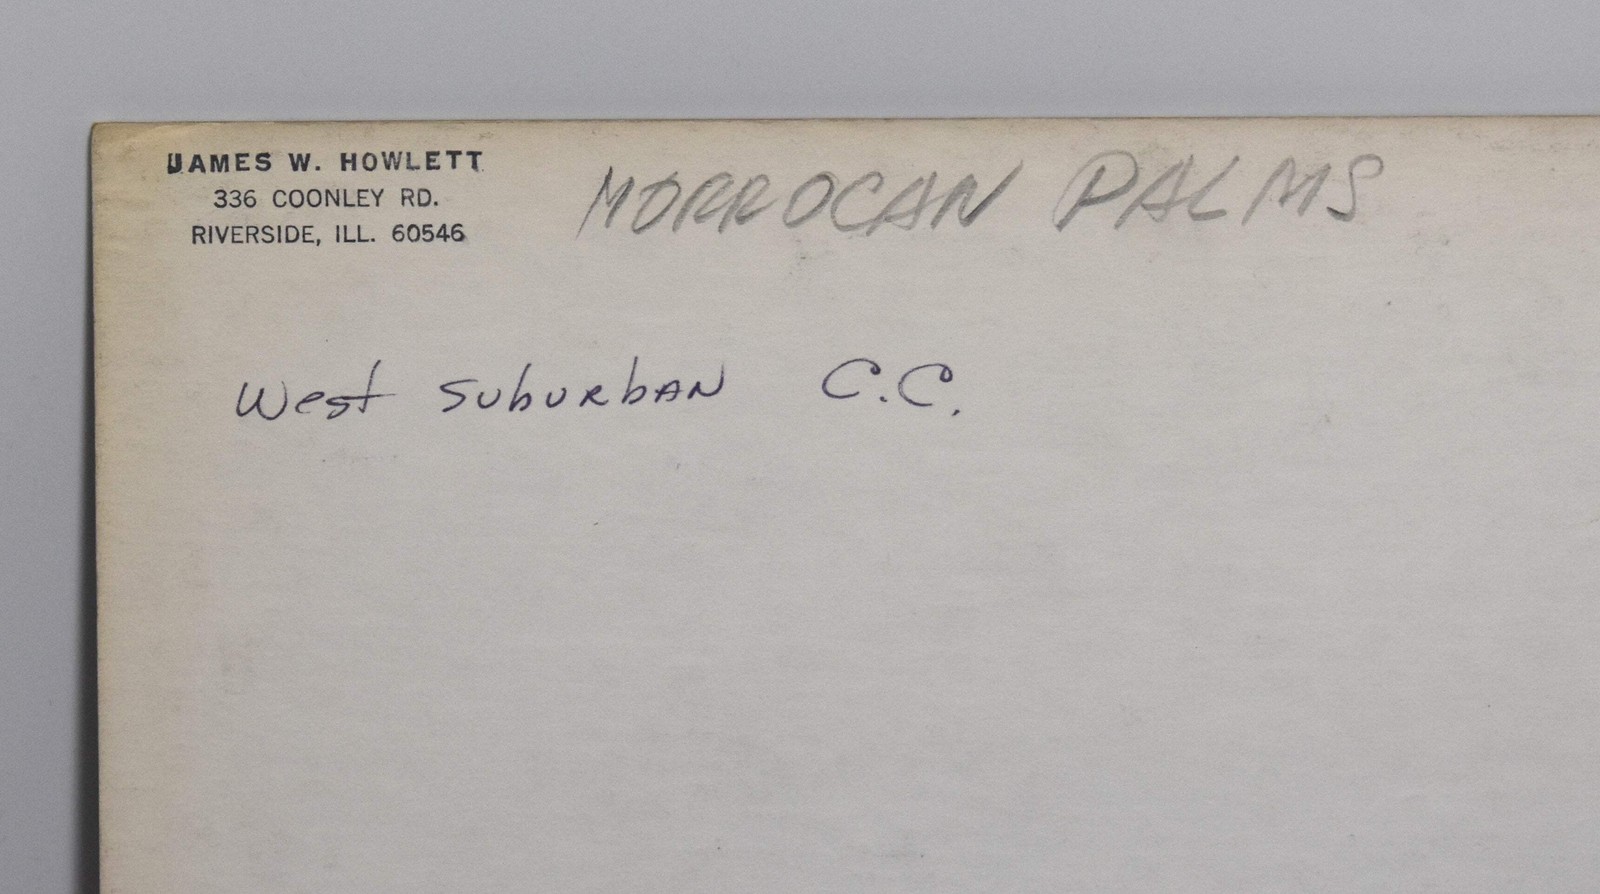 JAMES W. HOWLETT
336 COONLEY RD.
RIVERSIDE, ILL. 60546
MORROCAN PALMS
West Suburban C.C.